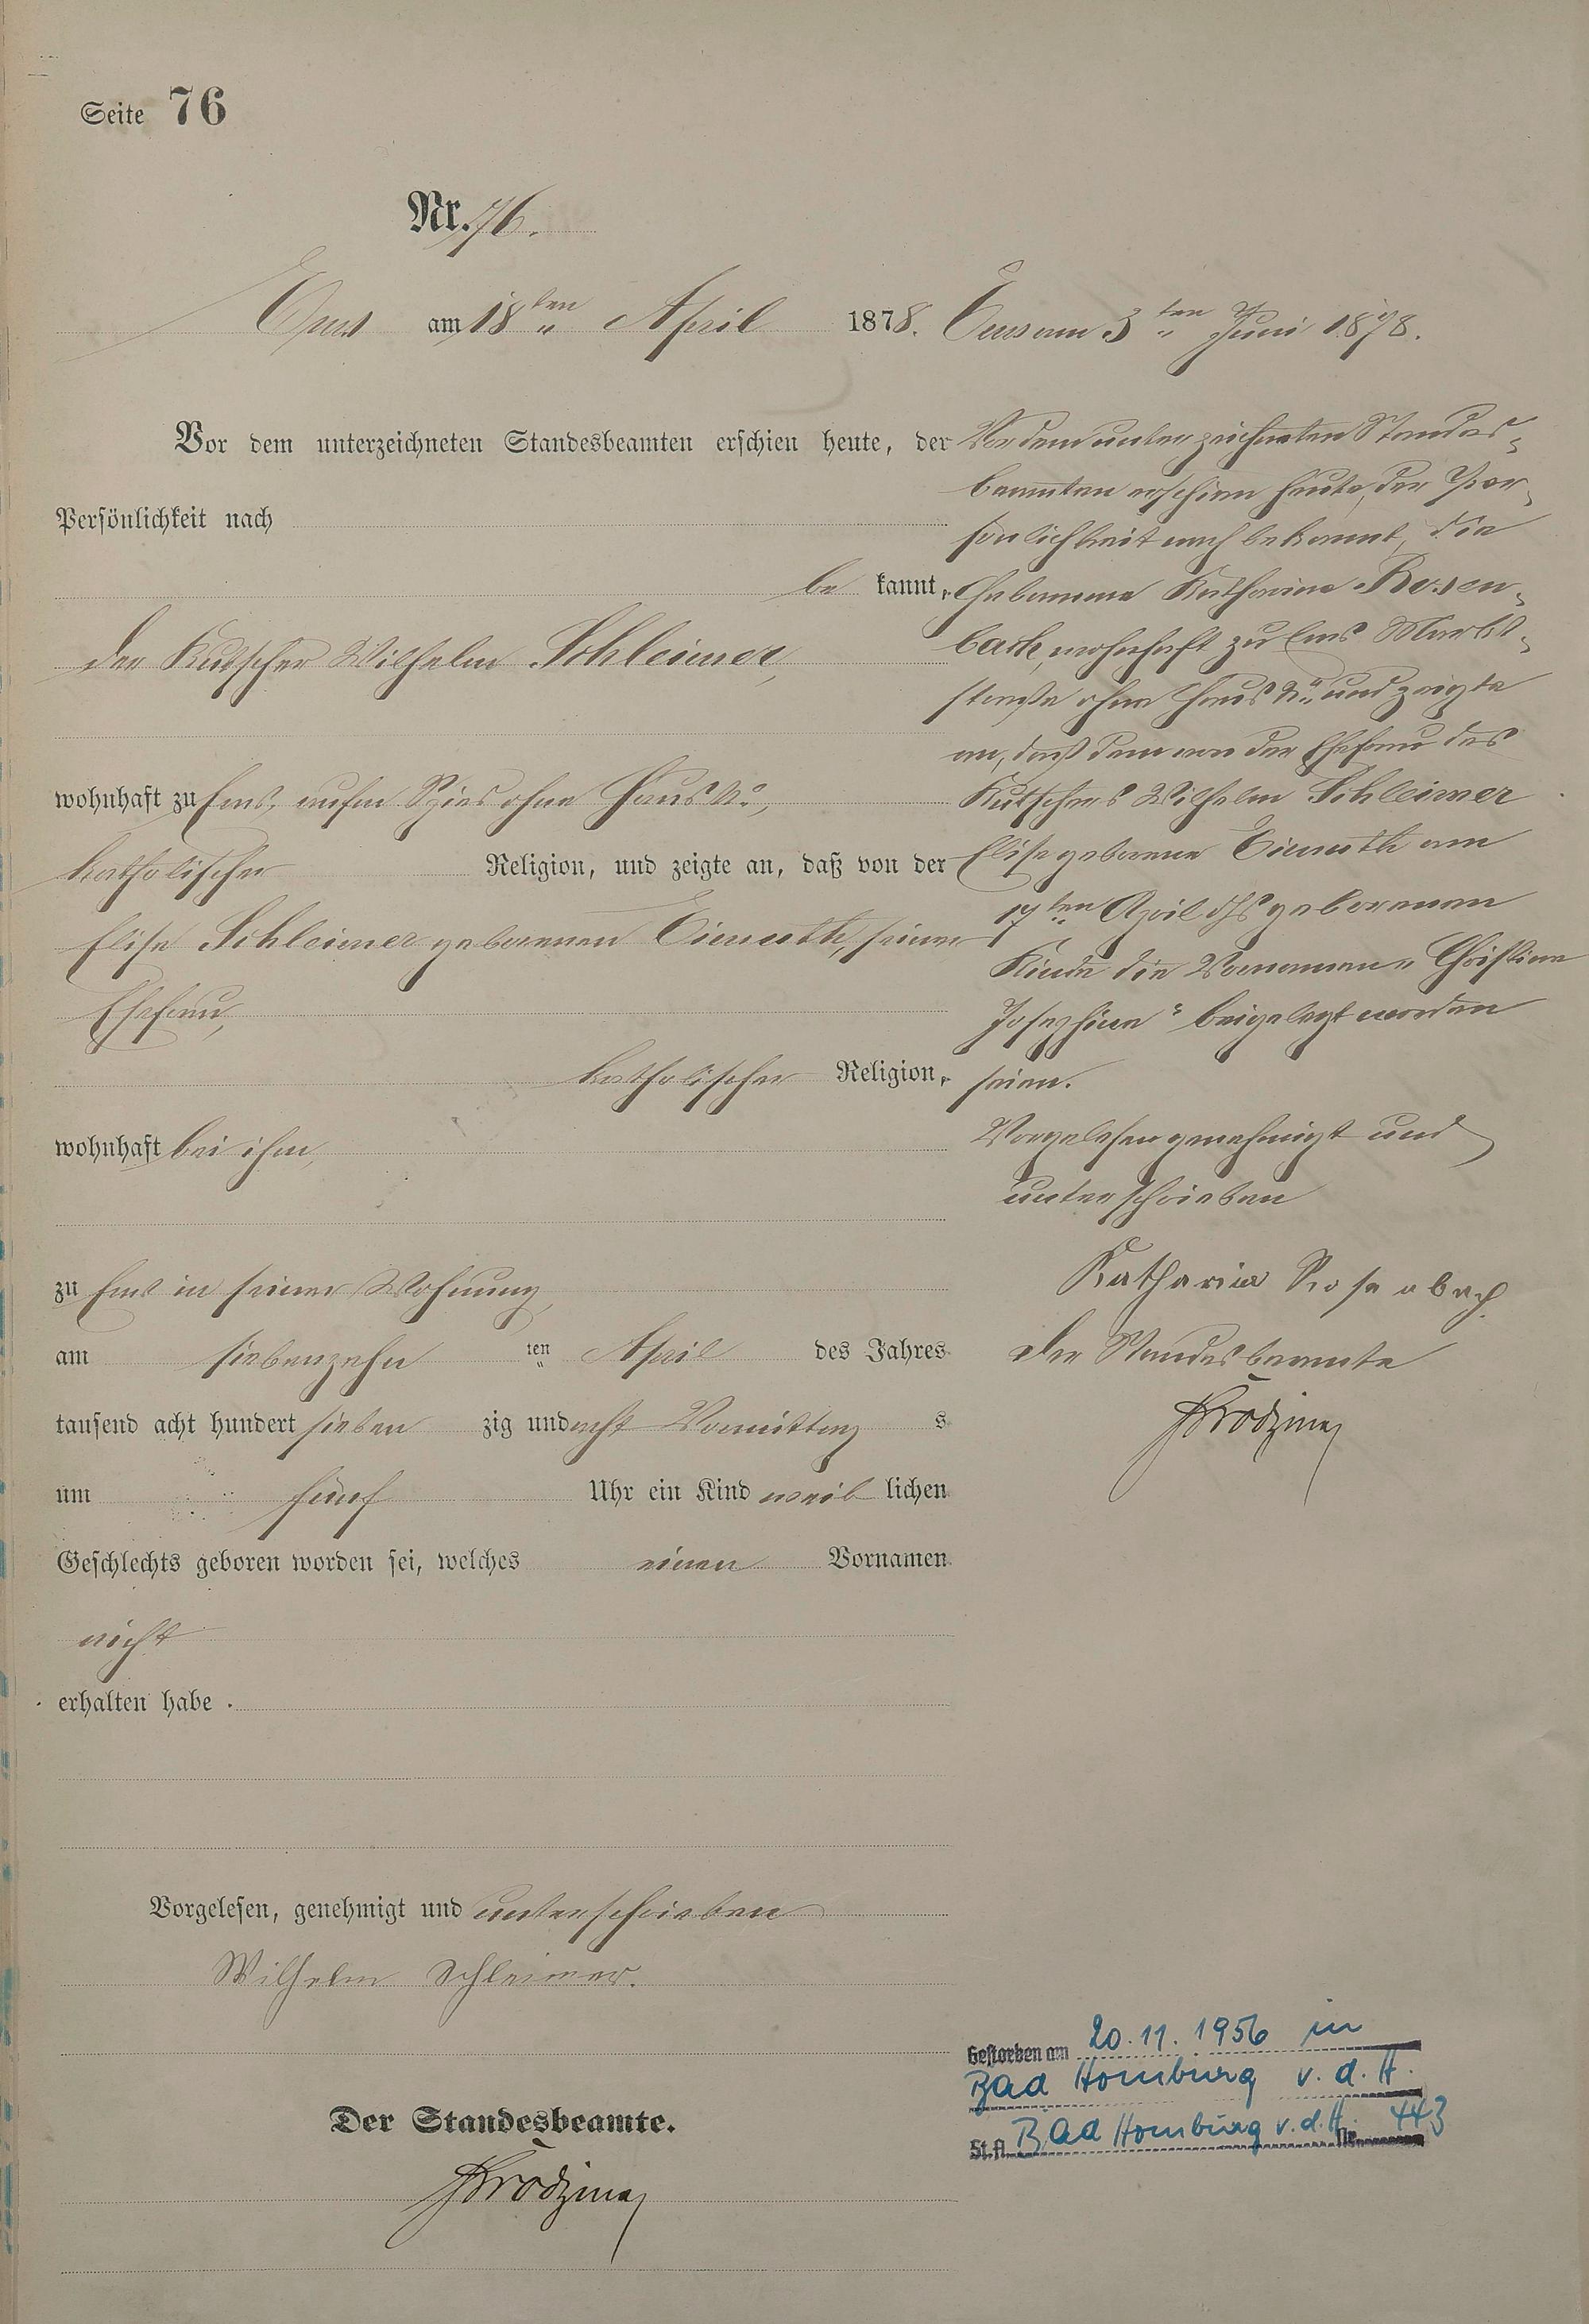 Seite 76
Nr. 76.
Ems am 18ten April 1878.
Vor dem unterzeichneten Standesbeamten erschien heute, der
Persönlichkeit nach
be kannt,
der Kutscher Wilhelm Schleimer,
wohnhaft zu Ems, aufm Spies ohne Haus No.,
katholischer Religion, und zeigte an, daß von der
Elise Schleimer geborenen Eimuth, seiner
Ehefrau,
katholischer Religion,
wohnhaft bei ihm,
zu Ems in seiner Wohnung,
am siebenzehn ten April des Jahres
tausend acht hundert sieben zig und acht Vormittag s
um fünf Uhr ein Kind weib lichen
Geschlechts geboren worden sei, welches einen Vornamen
nicht
erhalten habe.
Vorgelesen, genehmigt und unterschrieben
Wilhelm Schleimer.
Der Standesbeamte.
Ems am 3ten Juni 1878.
Vor dem unterzeichneten Standes-
beamten erschien heute, der Per-
sönlichkeit nach bekannt, die
Hebamme Katharina Rosen-
bach, wohnhaft zu Ems Markt-
straße ohne Haus No. und zeigte
an, daß dem von der Ehefrau des
Kutschers Wilhelm Schleimer
Elise geborene Eimuth am
17ten April ds geborenen
Kinde die Vornamen „Christine
Josephine“ beigelegt worden
seien.
Vorgelesen genehmigt und
unterschrieben
Katharina Rosenbach.
Der Standesbeamte
Gestorben am 20.11.1956 in
Bad Homburg v. d. H.
St.A. Bad Homburg v. d. H. Nr. 443